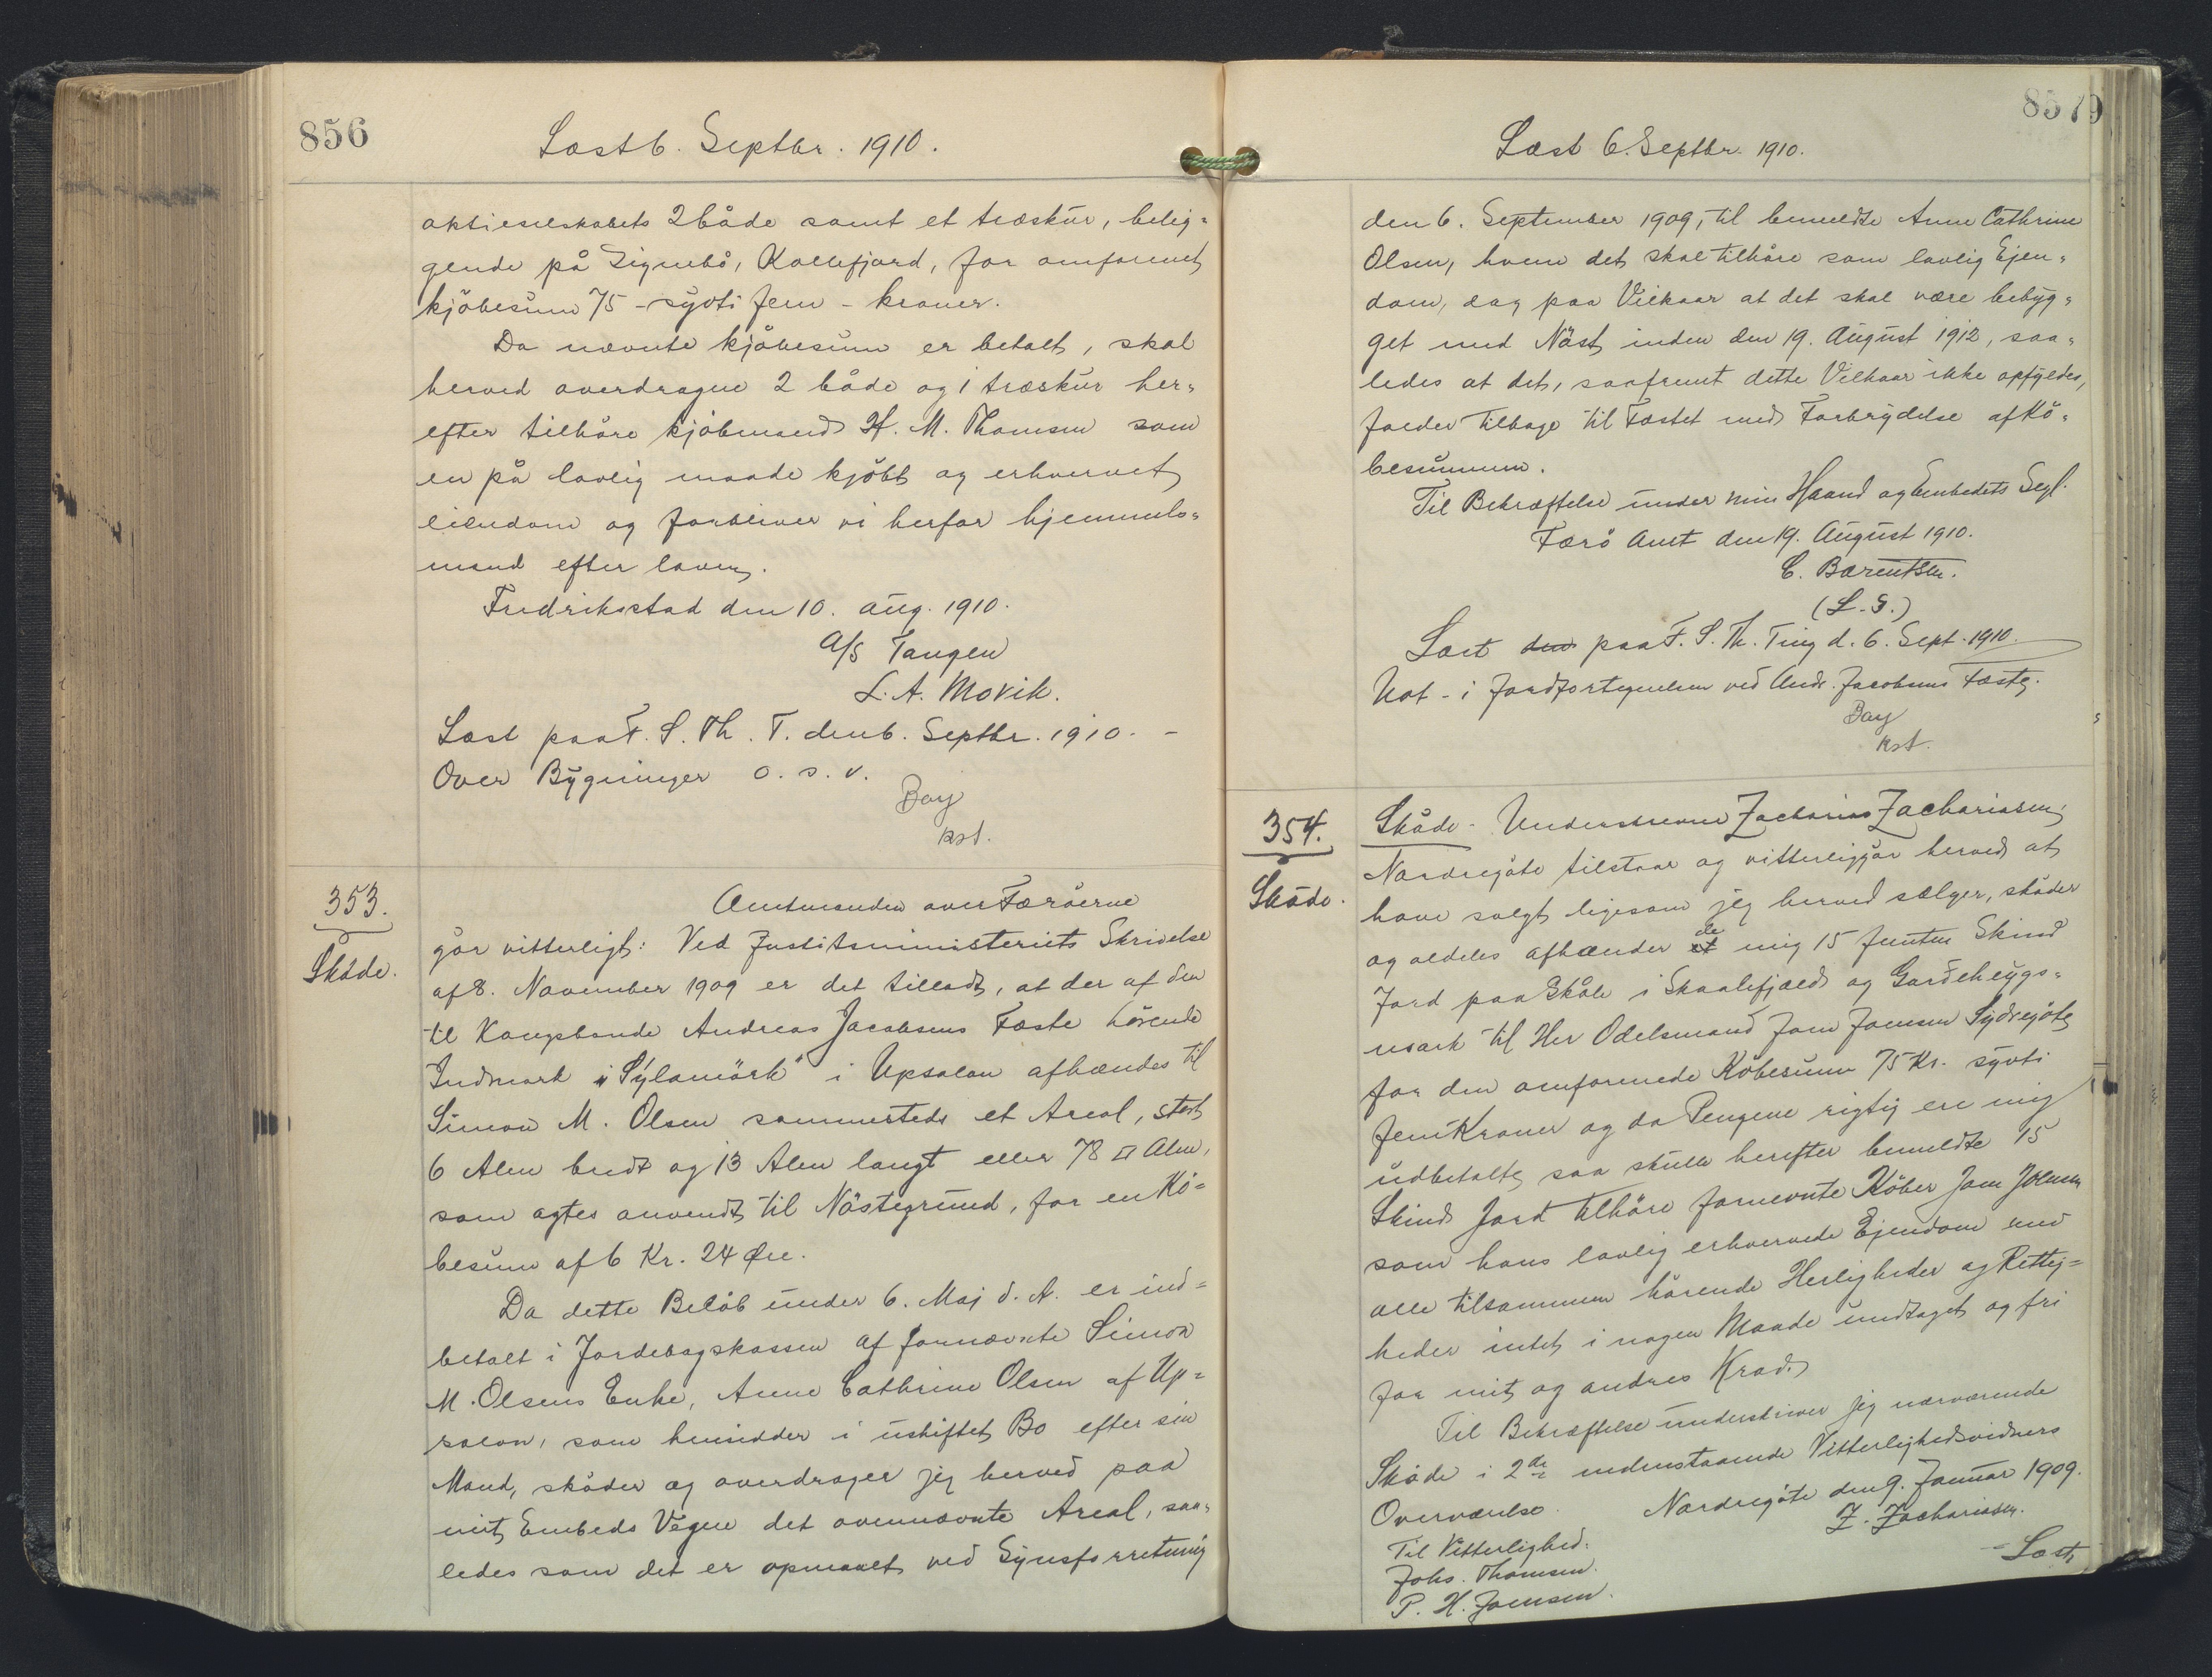 856
Læst 6. Septbr. 1910.
aktieselskabets 2 både samt et træskur, belig=
gende på Signebö, Kollefjord, for omforenet
kjöbesum 75 - sytti fem - kroner.
Da nævnte kjöbesum er betalt, skal
herved overdragne 2 både og 1 træskur her=
efter tilhöre kjöbmand H. M. Thomsen som
en på lovlig maade kjöbt og erhvervet
eiendom og forbliver vi herfor hjemmels=
mænd efter loven.
Fredriksstad den 10. aug. 1910.
A/S Tangen
L. A. Movik.
Læst paa F. S. Th. T. den 6. Septbr. 1910. -
Over Bygninger o. s. v.
Bay
kst.
353.
Sköde.
Amtmanden over Færöerne
gör vitterligt: Ved Justitsministeriets Skrivelse
af 8. November 1909 er det tilladt, at der af den
til Kongsbonde Andreas Jacobsens Fæste hörende
Indmark i "Sýlamörk" i Upsalon afhændes til
Simon M. Olsen sammesteds et Areal, stort
6 Alen bredt og 13 Alen langt eller 78 □ Alen,
som agtes anvendt til Nöstegrund, for en Kö=
besum af 6 Kr. 24 Øre.
Da dette Belöb under 6. Maj d. A. er ind=
betalt i Jordebogskassen af fornævnte Simon
M. Olsens Enke, Anne Cathrine Olsen af Up=
salon, som hensidder i uskiftet Bo efter sin
Mand, sköder og overdrager jeg herved paa
mit Embeds Vegne det ovennævnte Areal, saa=
ledes som det er opmaalt ved Synsforretning
857
Læst 6. Septbr. 1910.
den 6. September 1909, til bemeldte Anne Cathrine
Olsen, hvem det skal tilhöre som lovlig Ejen=
dom, dog paa Vilkaar at det skal være bebyg=
get med Nöst inden den 19. August 1912, saa=
ledes at det, saafremt dette Vilkaar ikke opfyldes,
falder tilbage til Fæstet med Forbrydelse af Kö=
besummen.
Til Bekræftelse under min Haand og Embedets Segl.
Færö Amt den 19. August 1910.
C. Bærentsen.
(L. S.)
Læst den paa F. S. Th. Ting d. 6. Sept. 1910.
Not. i Jordfortegnelsen ved Andr. Jacobsens Fæste.
Bay
kst.
354.
Sköde.
Sköde. Underskrevne Zacharias Zachariasen,
Nordregöte tilstaar og vitterliggör herved at
have solgt ligesom jeg herved sælger, sköder
og aldeles afhænder et de mig 15 femten Skind
Jord paa Skåle i Skaalefjæld og Gardeheygs=
mark til Hr Odelsmand Joen Joensen Sydregöte
for den omforenede Köbesum 75 Kr. syvti
fem Kroner og da Pengene rigtig ere mig
udbetalte saa skulle herefter bemeldte 15
Skind Jord tilhöre fornevnte Köber Joen Joensen
som hans lovlig erhvervede Ejendom med
alle tilsammen hörende Herligheder og Rettig=
heder intet i nogen Maade undtaget og fri
for mit og andres Krav.
Til Bekræftelse underskriver jeg nærværende
Sköde i 2de nedenstaaende Vitterlighedsvidners
Overværelse. Nordregöte den 9. Januar 1909.
Z. Zachariasen.
Til Vitterlighed:
Johs. Thomsen.
P. H. Joensen.
- Læst